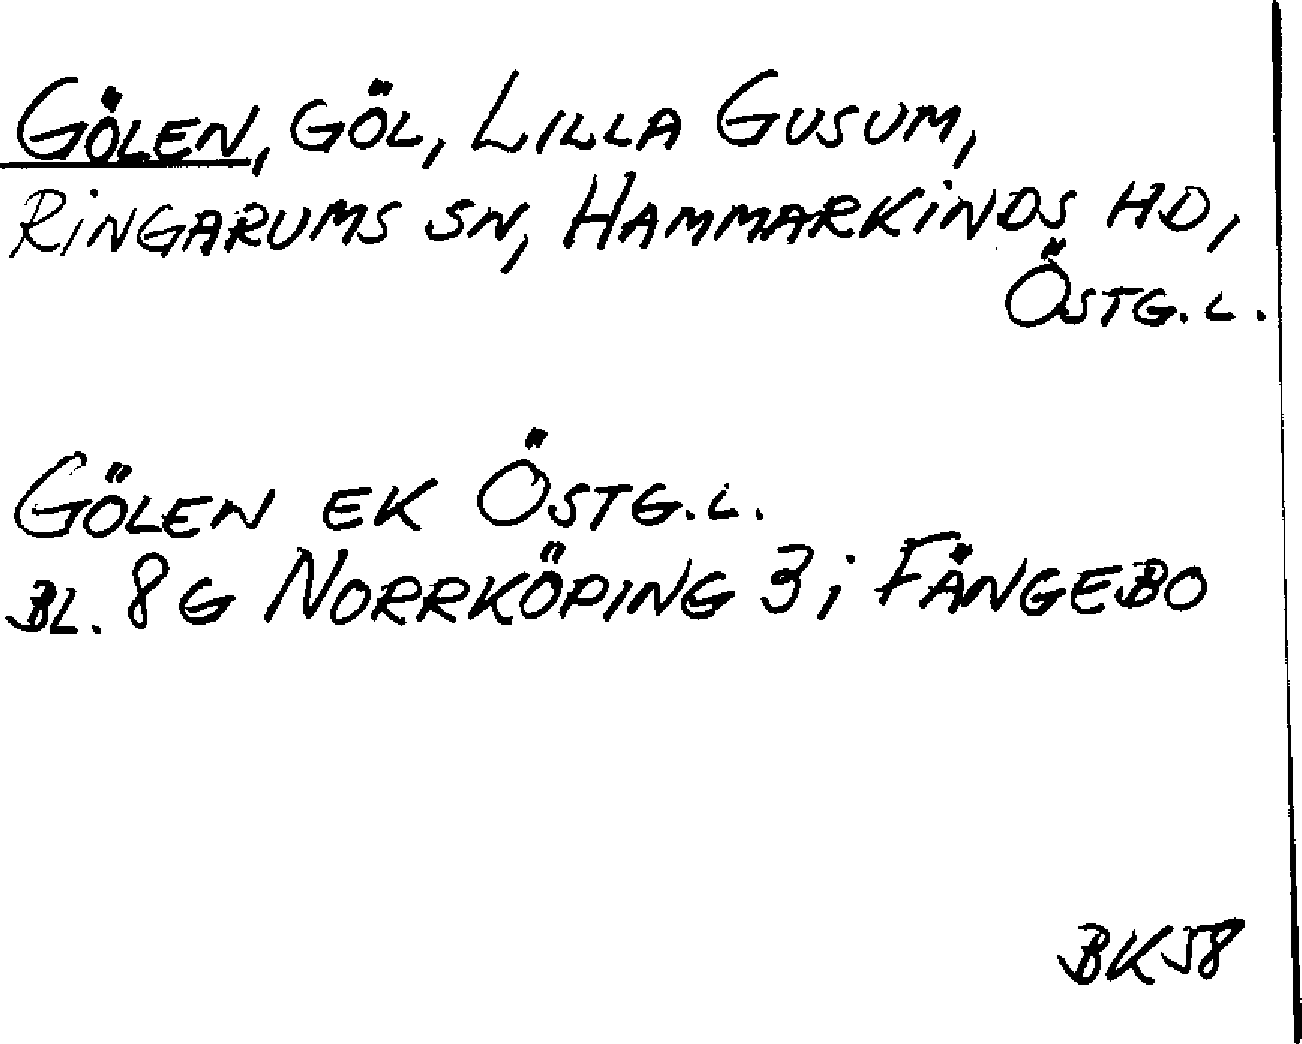 Gölen, Göl, Lilla Gusum,
Ringarums sn, Hammarkinds hd,
Östg.l.
Gölen ek Östg.l.
Bl. 8G Norrköping 3i Fängebo
BK58